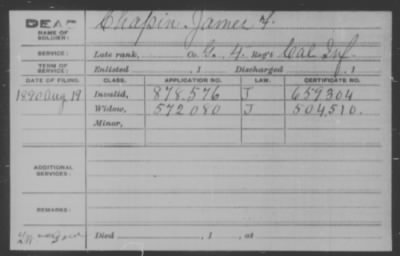 DEAD Chapin, James F.
NAME OF SOLDIER:
SERVICE: Late rank, Co. G., 4 Reg't Cal Inf.
TERM OF SERVICE: Enlisted , 1 Discharged , 1
DATE OF FILING. CLASS. APPLICATION NO. LAW. CERTIFICATE NO.
1890 Aug 19 Invalid, 878.576 J 659304
Widow, 572080 J 504,510.
Minor,
ADDITIONAL SERVICES:
REMARKS:
Died , 1 , at